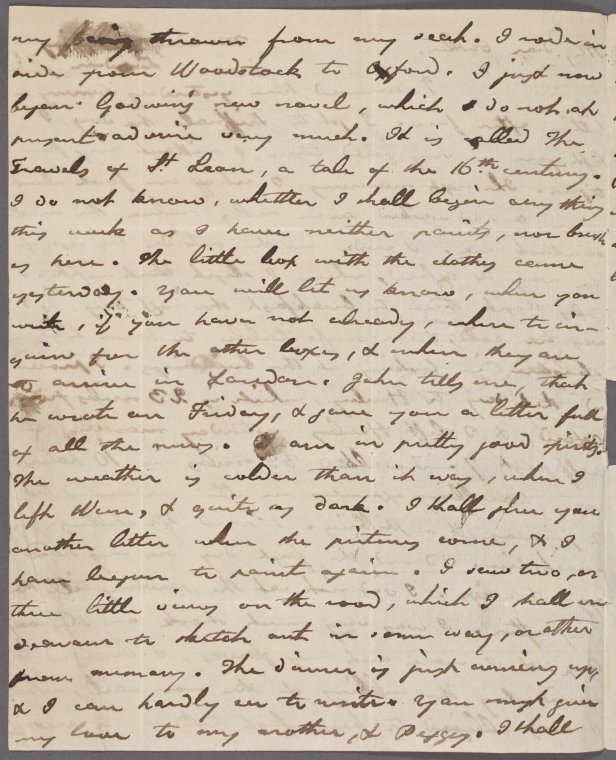 my being thrown from my seat. I rode in
side from Woodstock to Oxford. I just now
began Godwin's new novel, which I do not at
present admire very much. It is called The
Travels of St Leon, a tale of the 16th century.
I do not know, whether I shall begin any thing
this week as I have neither paints, nor brush
es here. The little box with the clothes came
yesterday. You will let us know, when you
write, if you have not already, where to in-
quire for the other boxes, & when they are
to arrive in London. John tells me, that
he wrote on Friday, & gave you a letter full
of all the news. I am in pretty good spirits.
The weather is colder than it was, when I
left Wem, & quite as dark. I shall give you
another letter when the pictures come, & I
have begun to paint again. I saw two, or
three little views on the road, which I shall en
deavour to sketch out in some way, or other
from memory. The dinner is just coming up,
& I can hardly see to write. You must give
my love to my mother, & Peggy. I shall